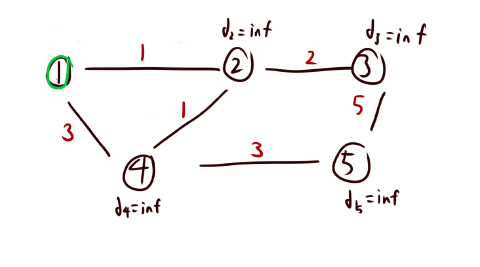 d₂=inf
d₃=inf
1
2
1
2
3
3
1
5
4
3
5
d₄=inf
d₅=inf